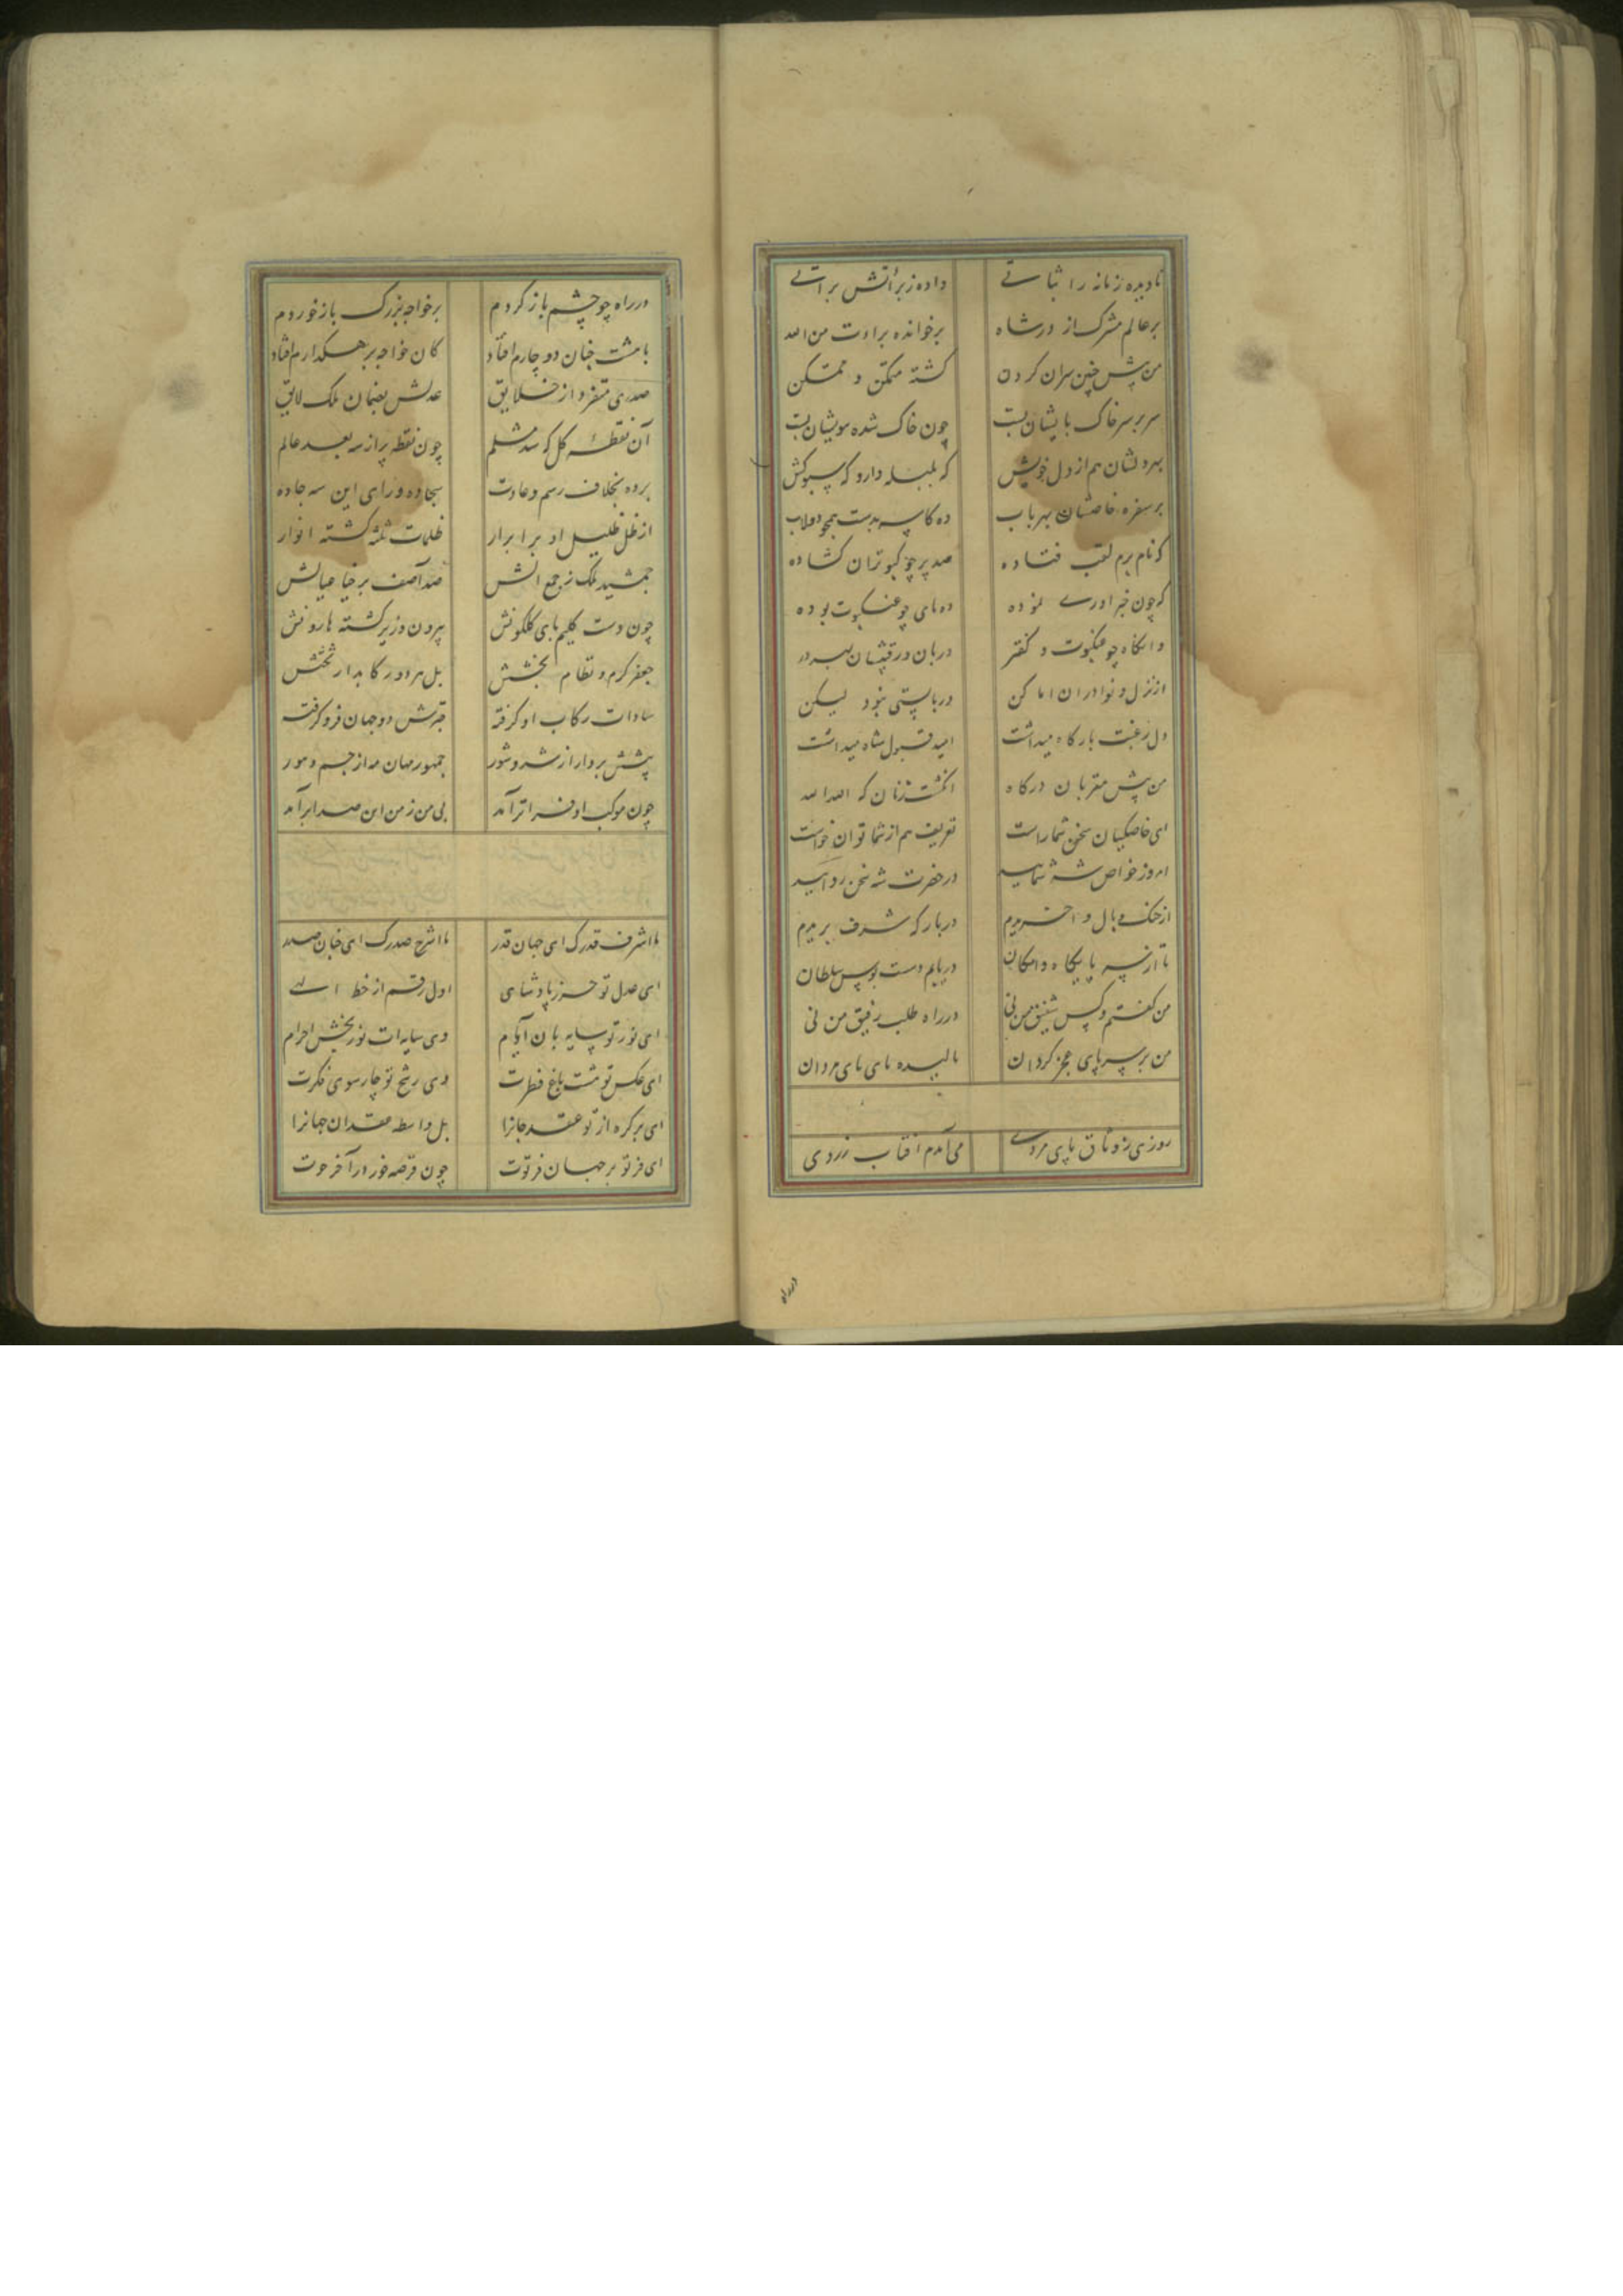 نادیده زمانه را ثباتے داده ز براتش براتے
بر عالم مشرک از در شاه برخوانده براءت من الله
من پیش چنین سران کردن گشته متمکن و ممتکن
سر بر سر خاک پایشان بست چون خاک شده مویشان بست
هم از دل خویش که بلبله دارو که سبوکش
بر سفره خاصشان بهر باب ده کاسه بدست همچو دولاب
که نام برم لقب فتاده صد پر چو کبوتران گشاده
که چون خبر آورے نموده ده پای چو عنکبوت بوده
وانگاه چو عنکبوت و کفتر دربان و رقیبشان بهر در
از نزل و نوا در آن اماکن دربایستی نبود لیکن
دل رغبت بارگاه میداشت امید قبول شاه میداشت
من پیش مقربان درگاه انگشت زنان که الله الله
ای خاصگیان سخن شماراست تعریف هم از شما توان خواست
امروز خواص شه شمایید در حضرت شه سخن روایید
از خنک وبال واخریدم در بارگه شرف بریدم
تا از سر پایگاه و امکان دریابم دست بوس سلطان
من گفتم و کس شفیق من نی در راه طلب رفیق من نی
من بر سر پای عجز گردان مالیده پای پای مردان
روزی ز وثاق پای مردے می آمدم آفتاب زردی
در راه
در راه چو چشم باز کردم بر خواجه بزرگ باز خوردم
با هشت جنان دو چارم افتاد کان خواجه برهگذارم افتاد
صدری متفرد از خلایق عدلش بضمان ملک لایق
آن نقطه کل که شد مسلم چون نقطه بر از سه بعد عالم
برده بخلاف رسم و عادت سجاده ورای این سه جاده
از ظل ظلیل او بر ابرار ظلمات ثلثه گشته انوار
جمشید ملک ز جمع الش صد آصف برخیا عیالش
چون دست کلیم پای گلگونش بیرون وزیر گشته هارونش
جعفر کرم و نظام بخشش بل هر دو رکابدار رخشش
سادات رکاب او گرفته قدرش دو جهان فرو گرفته
پیشش بر دار از شر و شور جمهور مهان مه از جم و مور
چون موکب او فراتر آمد بی من ز من این صدا برآمد
ما اشرف قدرک ای جهان قدر ما اشرح صدرک ای جنان صدر
ای عدل تو حرز پادشاهی اول رقم از خط الهے
ای نور تو سایه بان ایام وی سایه ات نور بخش اجرام
ای عکس تو هشت باغ فطرت وی رشح تو چار سوی فکرت
ای بر گره از تو عقد جانرا بل واسطه عقدان جهانرا
ای فر تو بر جهان فرتوت چون قرصه خور در آخر حوت